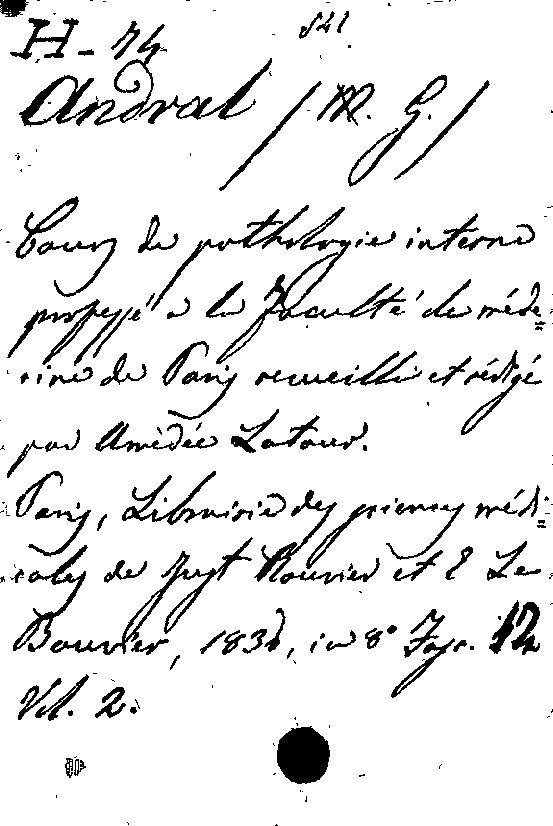 H-74 541
Andral / M. G. /
Cours de pathologie interne
professé a la Faculté de méde=
cine de Paris recueilli et rédigé
par Amédée Latour.
Paris, Librairie des sciences médi=
cales de Just Rouvier et E Le
Bouvier, 1836, in 8° 
Vol. 2.